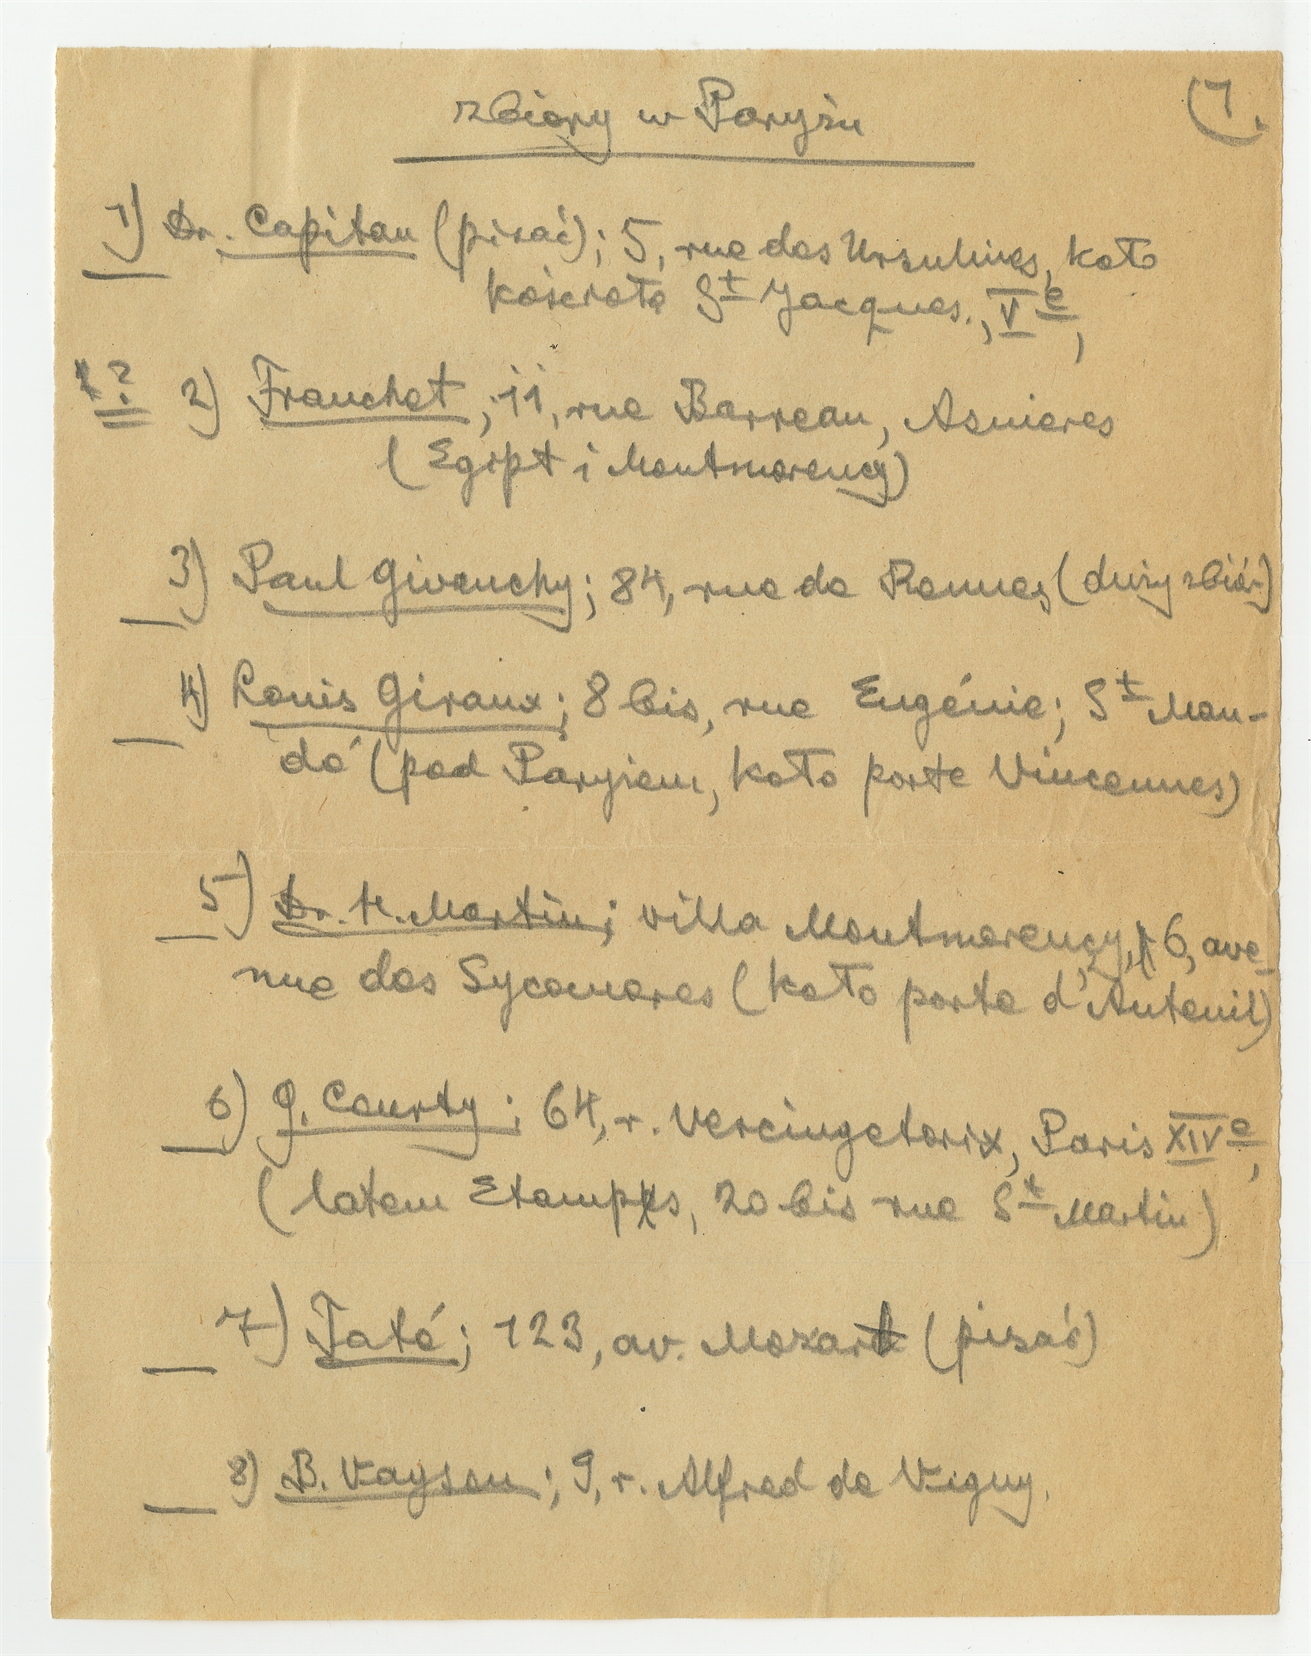 zbiory w Paryżu
(1.
1) Dr. Capitan (pisać); 5, rue des Ursulines, koło
kościoła St Jacques., Ve,
? 2) Franchet; 11, rue Barreau, Asnieres
(Egipt i Montmorency)
3) Paul Givenchy; 84, rue de Rennes, (duży zbiór)
4) Louis Giraux; 8 bis, rue Eugénie; St Man-
dé (pod Paryżem, koło porte Vincennes)
5) Dr. H. Martin; villa Montmorency, 6, ave-
nue des Sycomores (koło porte d'Auteuil)
6) G. Courty; 64, r. Vercingetorix, Paris XIVe,
(latem Etamps, 20 bis rue St Martin)
7) Taté; 123, av. Mozart (pisać)
8) B. Vayson; 9, r. Alfred de Vigny.